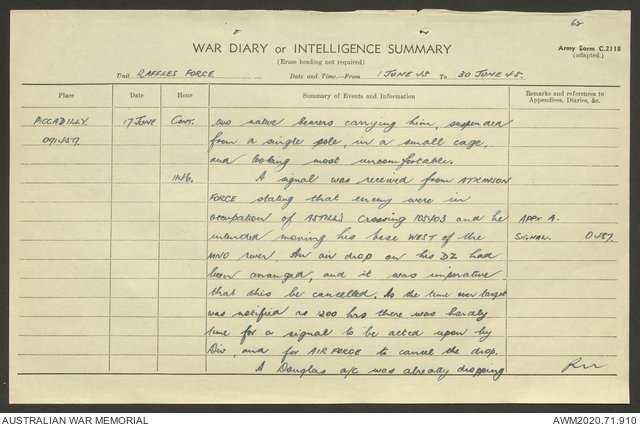 62
WAR DIARY or INTELLIGENCE SUMMARY
Army Form C.2118
(adapted.)
(Erase heading not required)
Unit RAFFLES FORCE Date and Time.—From 1 JUNE 45 To 30 JUNE 45.
Place Date Hour Summary of Events and Information Remarks and references to
Appendices, Diaries, &c.
PICCADILLY. 17 JUNE CONT. two native bearers carrying him, suspended
091459. from a single pole, in a small cage,
and looking most uncomfortable.
1146. A signal was received from ATKINSON
FORCE stating that enemy were in
occupation of ASTILL'S crossing 105403 and he APPX A.
intended moving his base WEST of the SIGNAL. 0487.
river. An air drop on his DZ had
been arranged, and it was imperative
that this be cancelled. As the time over target
was notified as 1200 hrs there was hardly
time for a signal to be acted upon by
Div, and for AIR FORCE to cancel the drop.
A Douglas a/c was already dropping
AUSTRALIAN WAR MEMORIAL AWM2020.71.910